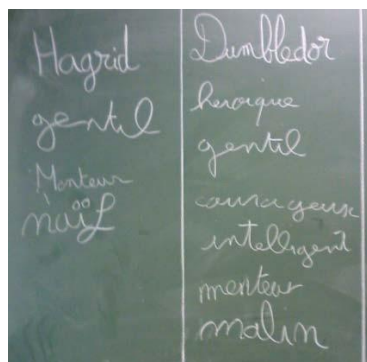 Hagrid
gentil
Monteur
naïf
Dumbledor
heroique
gentil
courageux
intelligent
menteur
malin